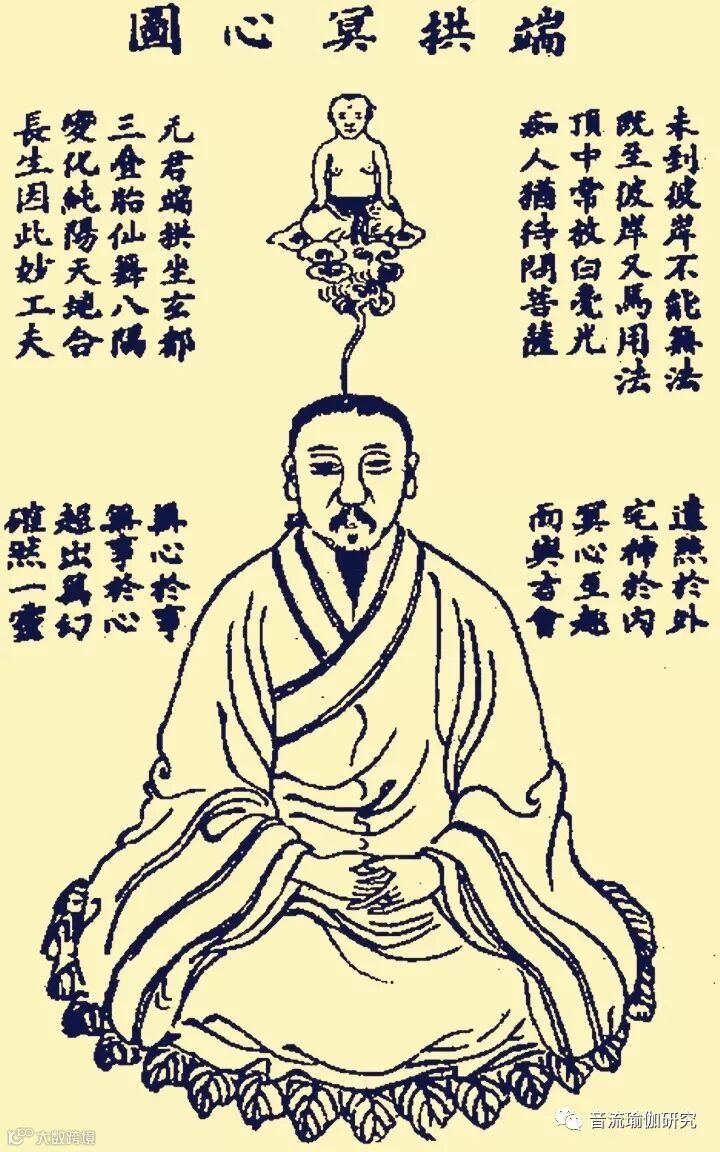 端拱冥心圖
未到彼岸不能無法
既至彼岸又焉用法
頂中常放白毫光
痴人猶待問菩薩
元君端拱坐玄都
三疊胎仙舞八隅
變化純陽天地合
長生因此妙工夫
遺照於外
宅神於內
冥心至趣
而與吉會
無心於事
無事於心
超出萬幻
確然一靈
音流瑜伽研究
大数跨境